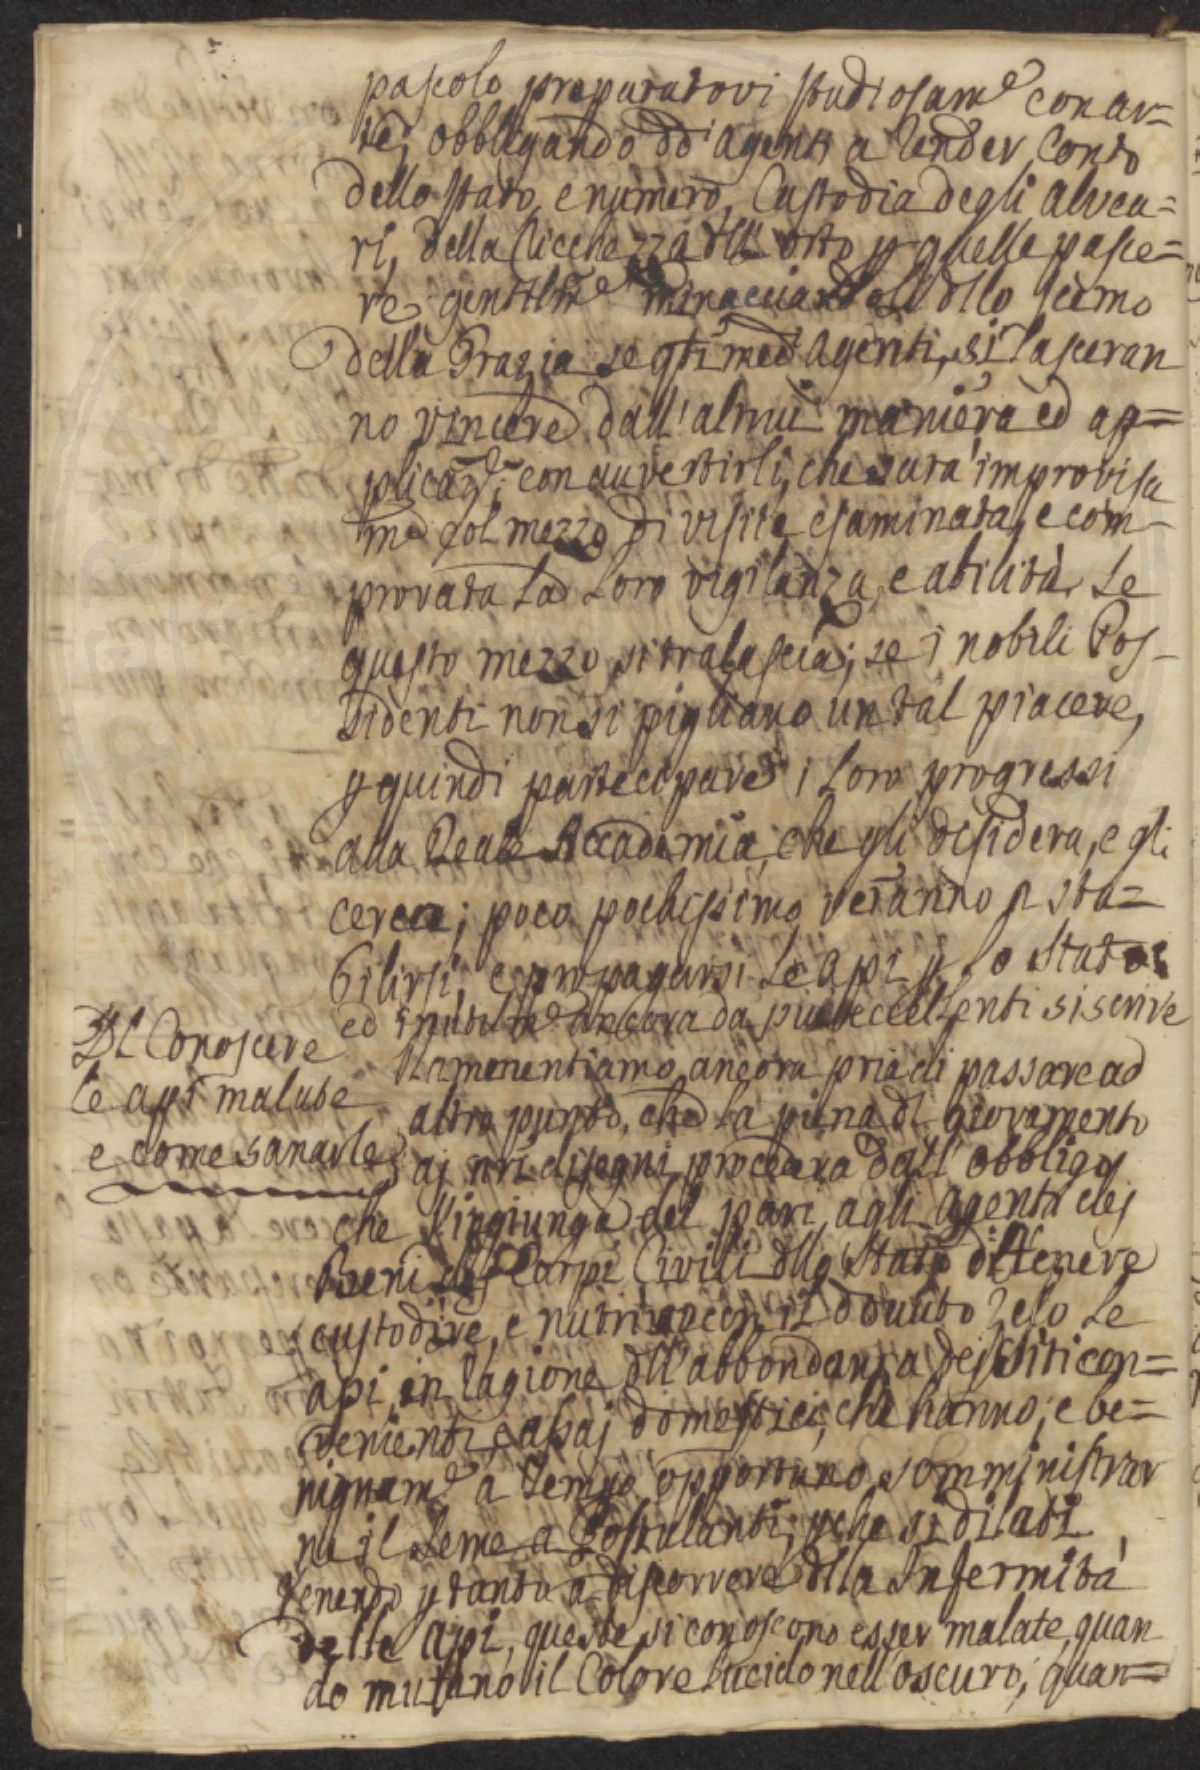 pascolo preparatovi studiosam.e con ar=
te, obbligando dd.i agenti a render conto
dello stato, e numero, Custodia degli alvea=
ri, della ricchezza dll' orto p quelle pasce=
re gentilm.e dllo scemo
della Grazia se qti med.i agenti, si lasceran
no vincere dall' altrui maniera ed ap=
plicaz.e; con avvertirli, che sarà improvisa
m.e col mezzo di visite esaminata, e com=
provata la loro vigilanza, e abilità. Se
questo mezzo si tralascia; se i nobili Pos=
sidenti non si pigliano un tal piacere,
p quindi partecipare i loro progressi
alla Reale Accademia, che gli desidera, e gli
cerca; poco pochissimo veranno a sta=
bilirsi, e propagarsi le api p lo stato
ed inutilm.e ancora da più eccellenti si scrive
Ramentiamo ancora pria di passare ad
altro punto, che la piena di giovamento
ai nri disegni, procederà dall' obbligo
che s'ingiunga del pari agli agenti dej
Beni dej Corpi Civili dllo Stato di tenere
custodire, e nutrire con il dovuto zelo le
api in ragione dll' abbondanza dej siti con=
venienti, e assaj domestici, che hanno; e be=
nignam.e a tempo opportuno somministrar
ne il seme a Postulanti, pche si dilati
Venendo ptanto a discorrere dlla Infermità
delle Api, queste si conoscono esser malate, quan
do mutano il Colore lucido nell' oscuro; quan=
Dl Conoscere
le api malate
e come sanarle